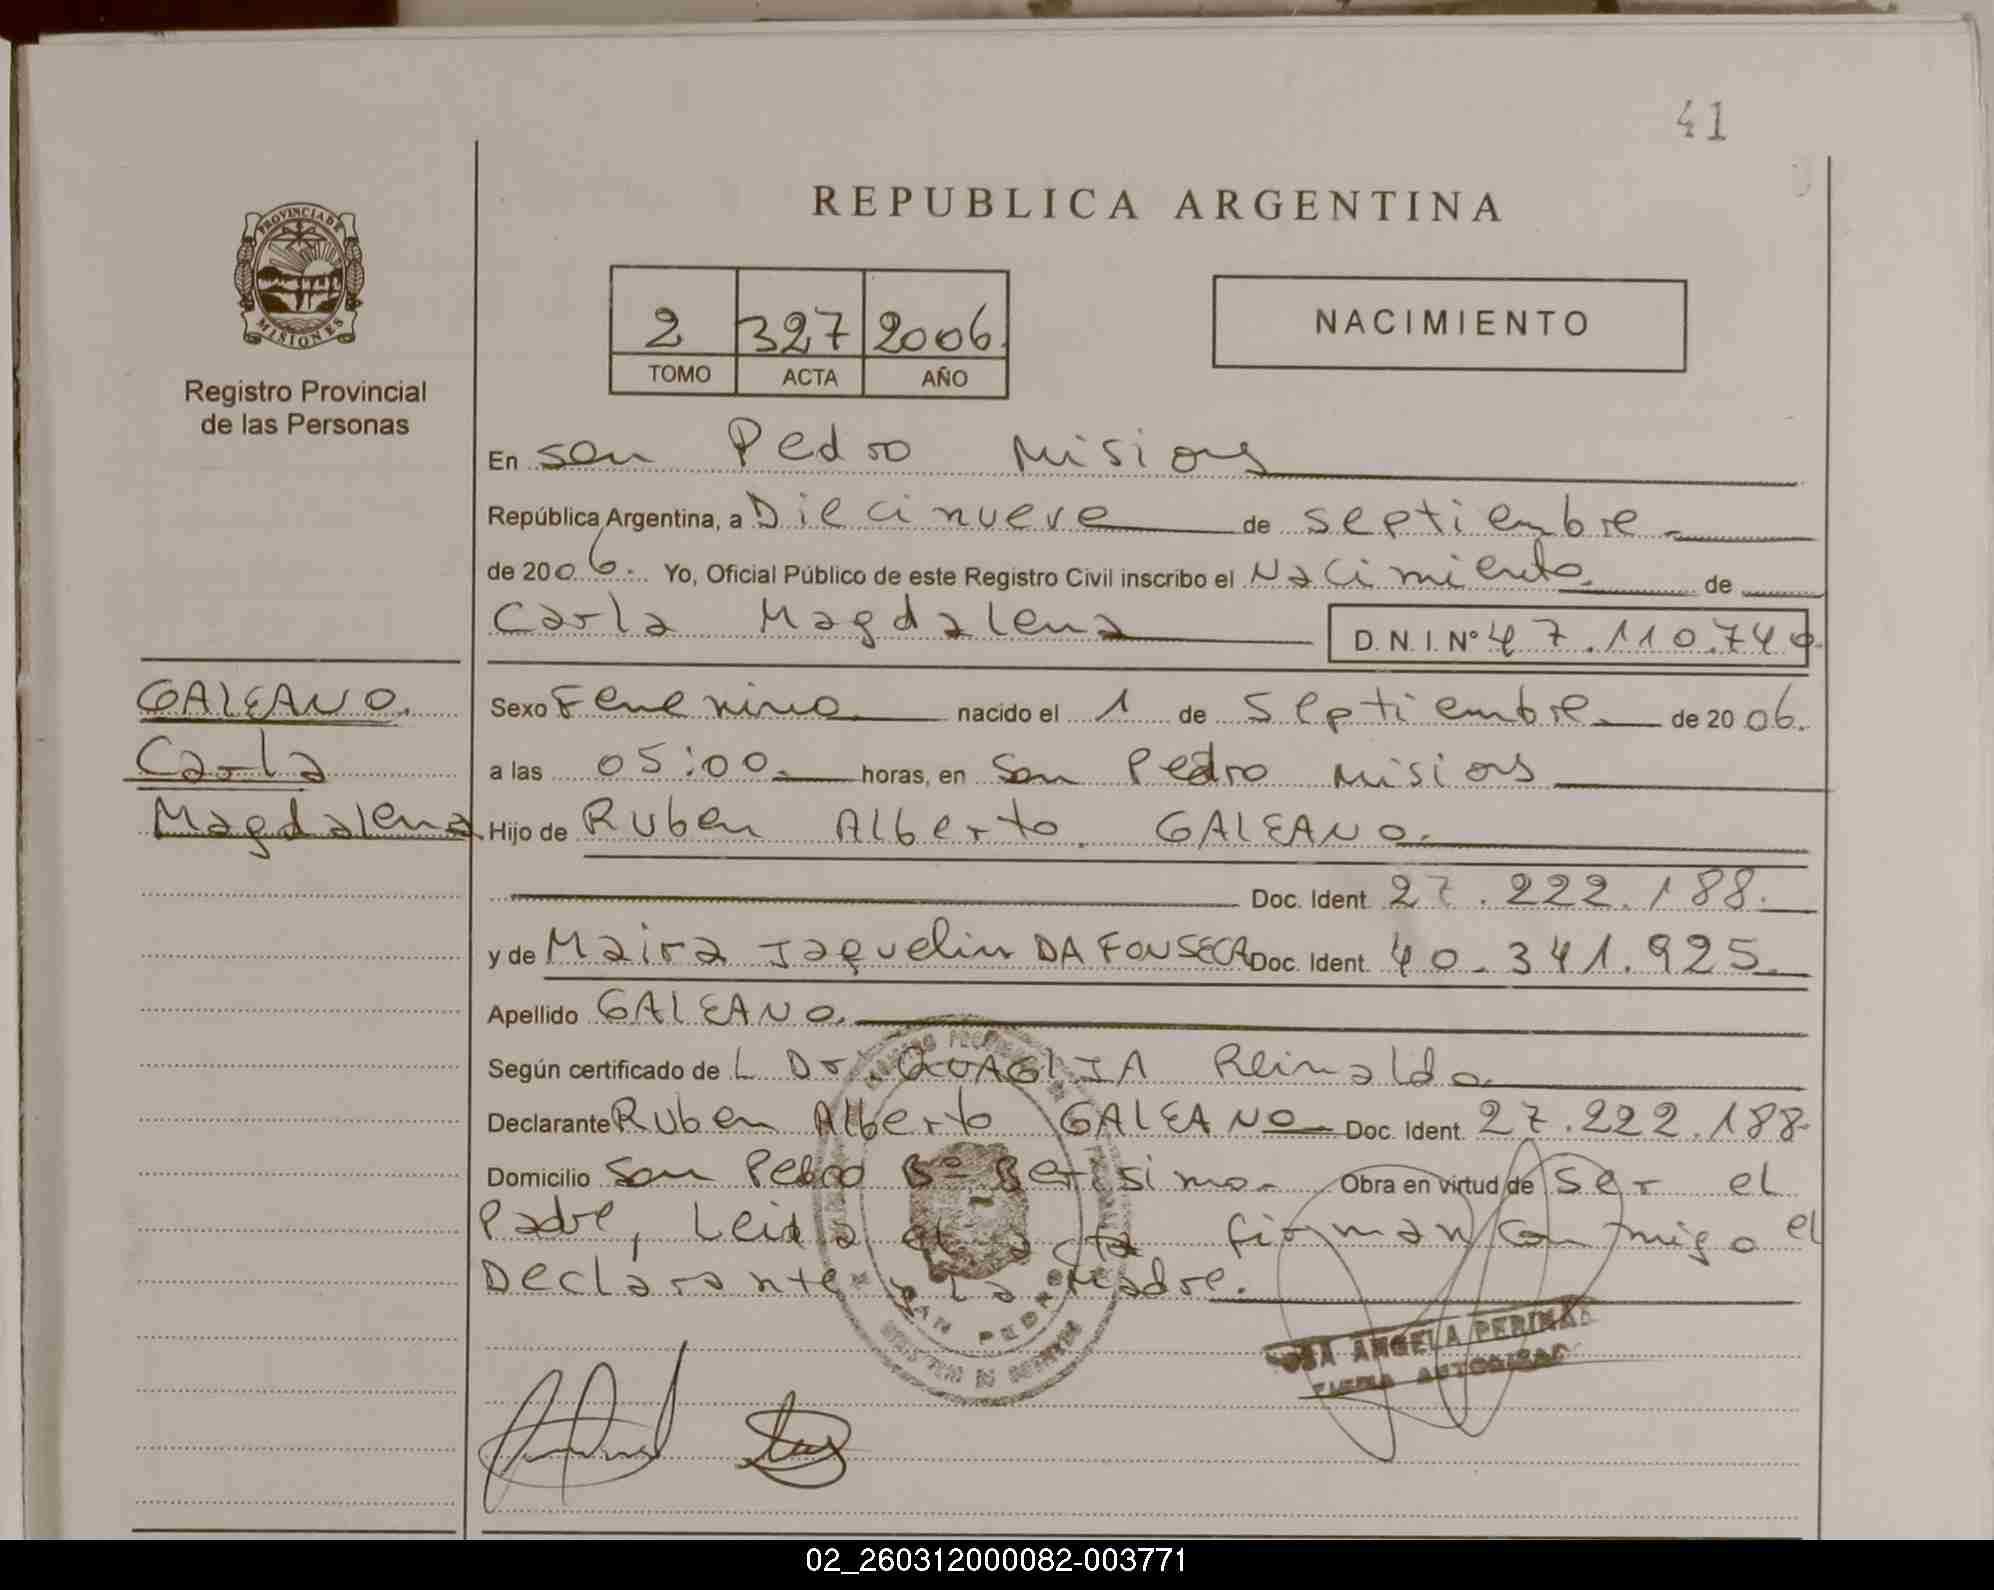 41
REPUBLICA ARGENTINA
PROVINCIA DE
MISIONES
Registro Provincial
de las Personas
2 327 2006.
TOMO ACTA AÑO
NACIMIENTO
En San Pedro Misions
República Argentina, a Diecinueve de septiembre.
de 2006. Yo, Oficial Público de este Registro Civil inscribo el Nacimiento. de
Carla Magdalena D.N.I. Nº 47.110.740
GALEANO.
Carla
Magdalena
Sexo Femenino nacido el 1 de Septiembre. de 2006.
a las 05:00. horas, en San Pedro Misions
Hijo de Ruben Alberto GALEANO.
Doc. Ident. 27.222.188.
y de Maira Jaquelin DA FONSECA Doc. Ident. 40.341.925.
Apellido GALEANO.
Según certificado de L Dr. QUAGLIA Reinaldo.
Declarante Ruben Alberto GALEANO. Doc. Ident. 27.222.188.
Domicilio San Pedro Bº Belisimo. Obra en virtud de Ser el
Padre, Leida el acta firman conmigo el
Declarante y La Madre.
SAN PEDRO
ANGELA
02_260312000082-003771